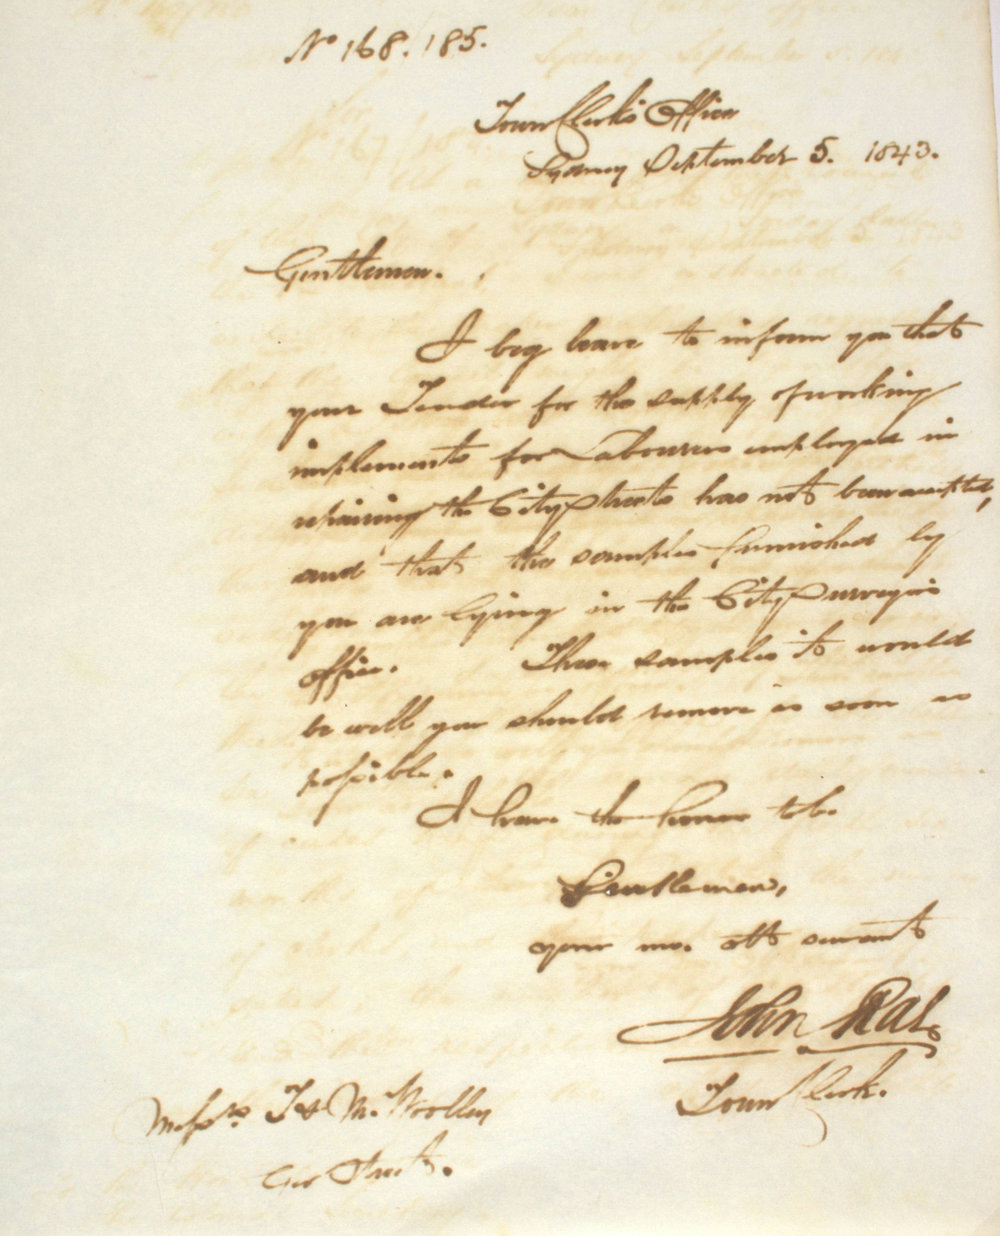 No 168. 185.
Town Clerk's Office
Sydney September 5. 1843.
Gentlemen.
I beg leave to inform you that
your Tender for the supply of working
implements for Labourers employed in
repairing the City Streets has not been accepted,
and that the samples furnished by
you are lying in the City Surveyors
office. These samples it would
be well you should remove as soon as
possible.
I have the honor to be
Gentlemen,
your mo. obt servant
John Rae
Town Clerk.
Messrs T & M. Woolley
Geo Street.